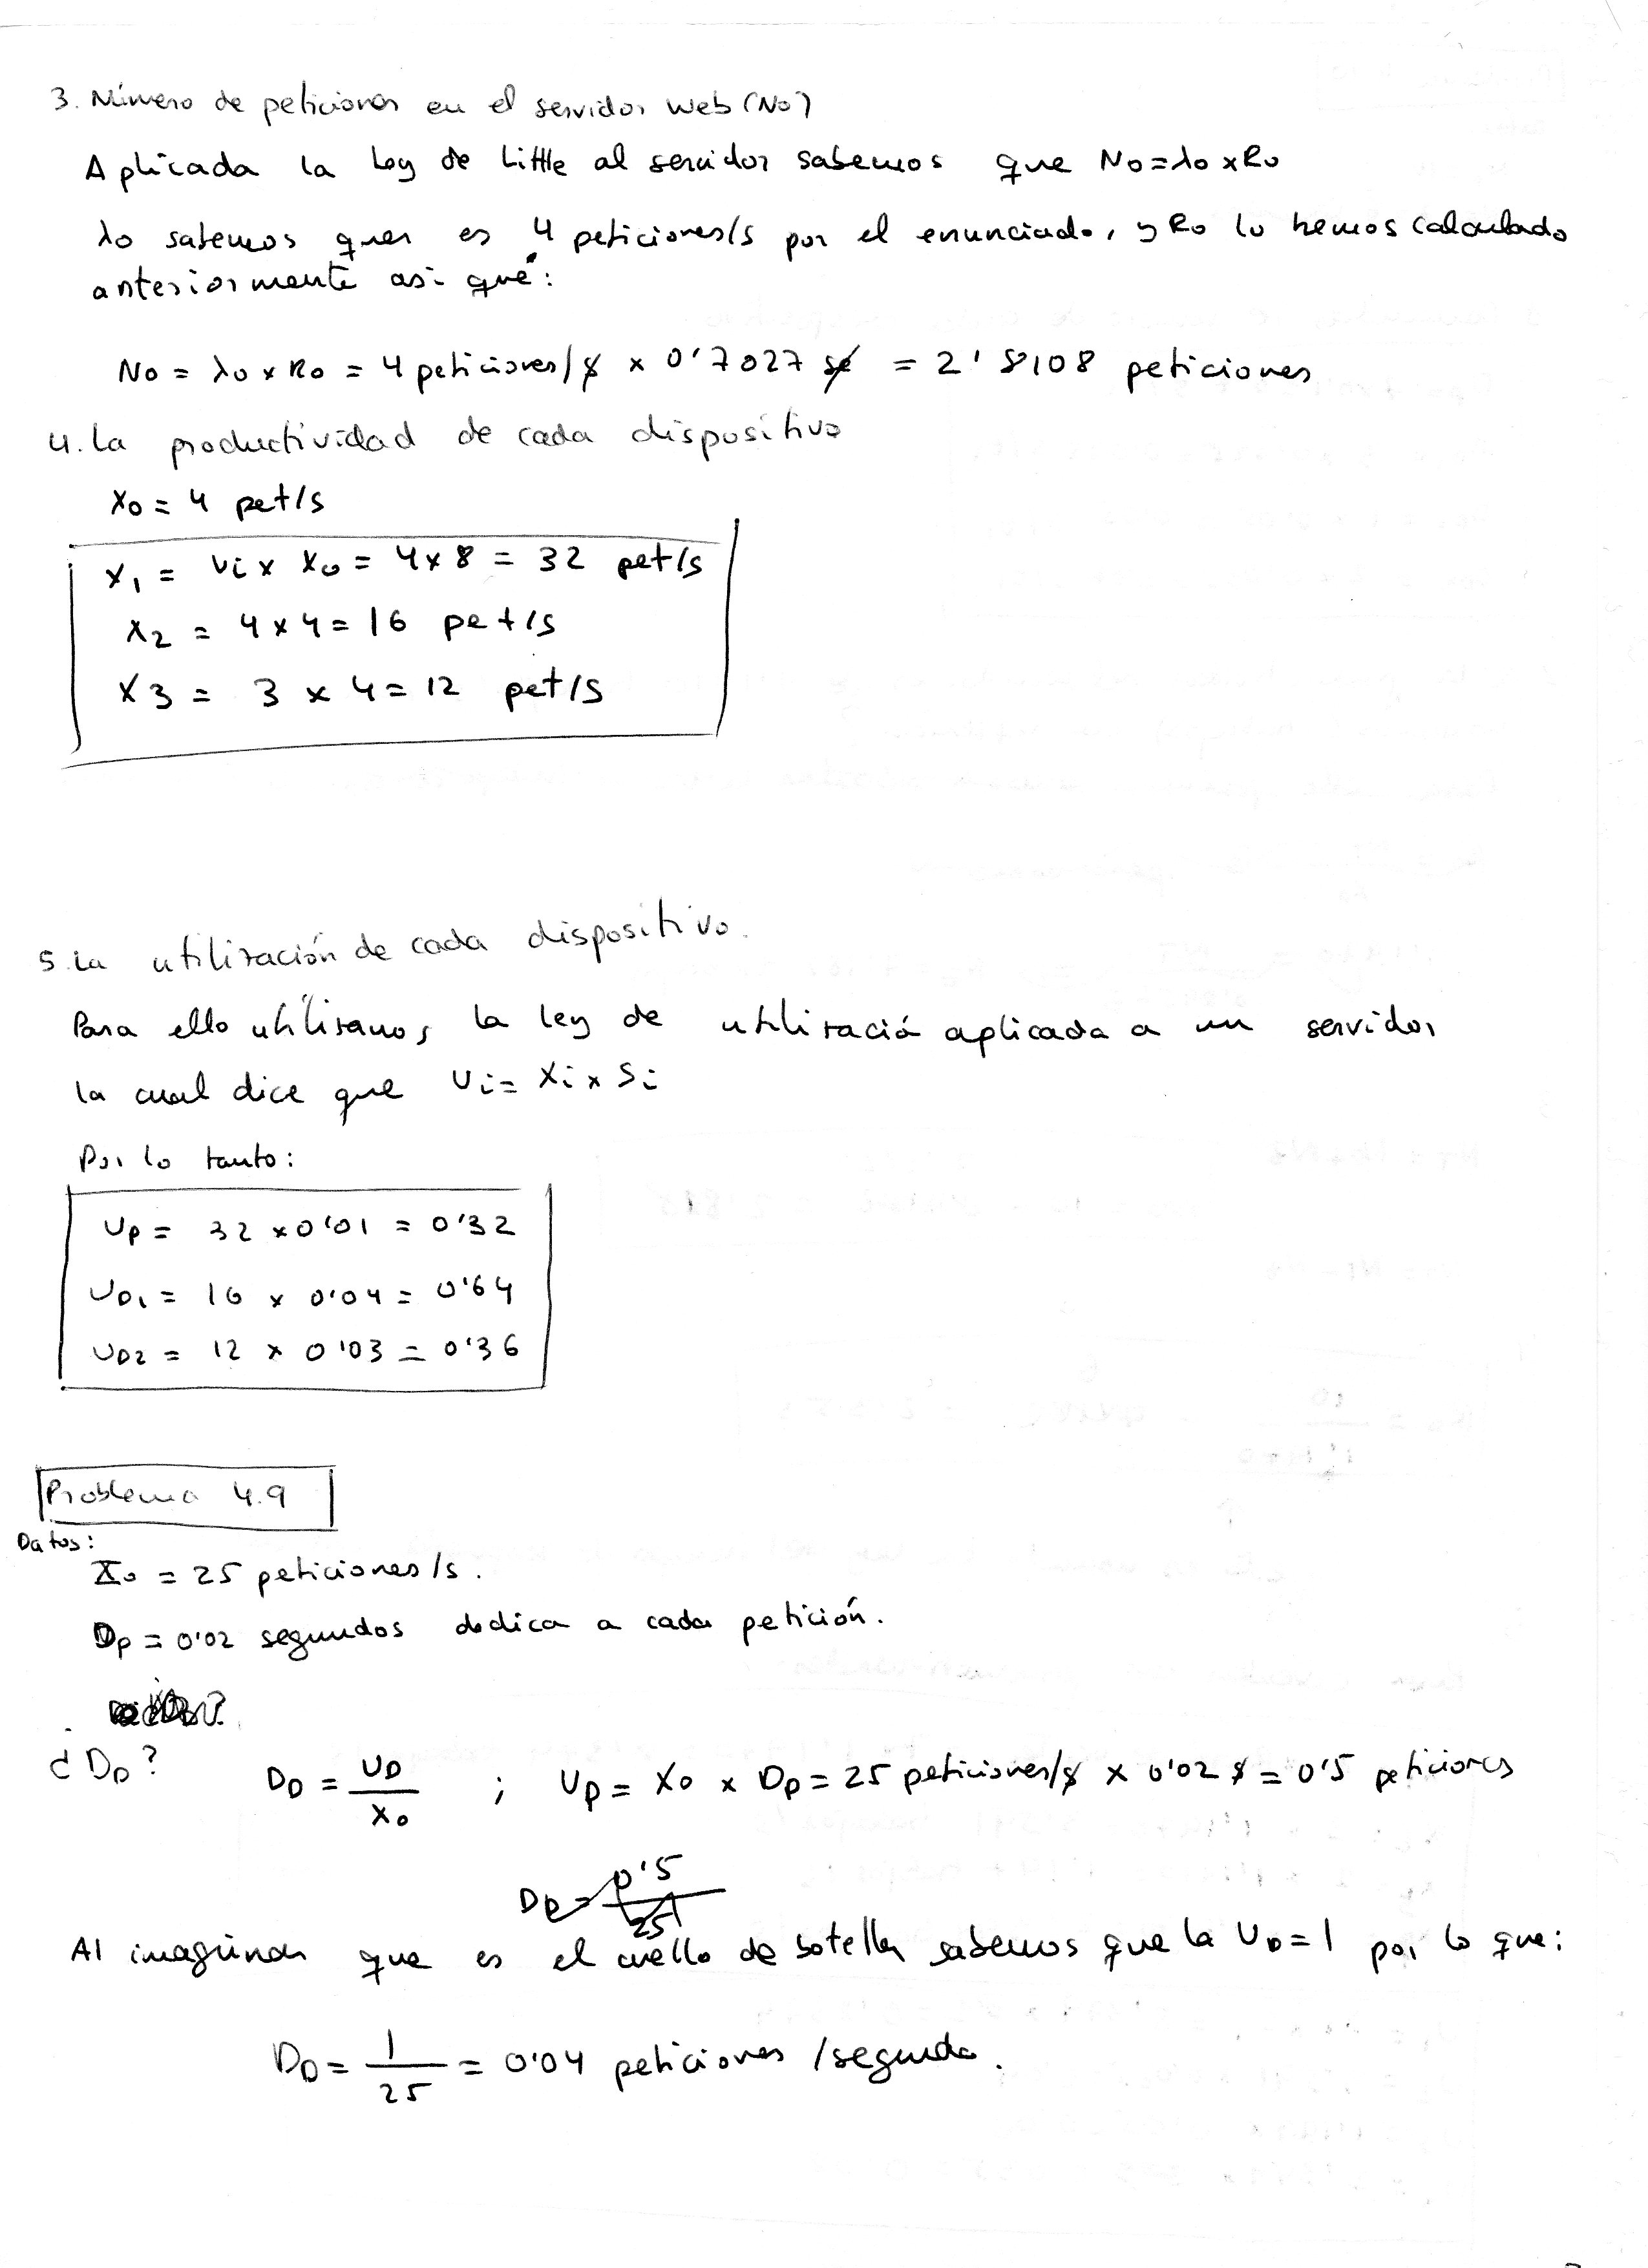 3. Número de peticiones en el servidor web (No)
Aplicada la Ley de Little al servidor sabemos que No=λo×Ro
λo sabemos que es 4 peticiones/s por el enunciado, y Ro lo hemos calculado
anteriormente así que:
No = λo × Ro = 4 peticiones/s × 0'7027 s = 2'8108 peticiones
4. La productividad de cada dispositivo
Xo = 4 pet/s
X1 = Vi × Xo = 4×8 = 32 pet/s
X2 = 4×4 = 16 pet/s
X3 = 3 × 4 = 12 pet/s
5. La utilización de cada dispositivo.
Para ello utilizamos la ley de utilización aplicada a un servidor
la cual dice que Ui = Xi × Si
Por lo tanto:
Up = 32 × 0'01 = 0'32
UD1 = 16 × 0'04 = 0'64
UD2 = 12 × 0'03 = 0'36
Problema 4.9
Datos:
Xo = 25 peticiones/s.
Dp = 0'02 segundos dedica a cada petición.
¿DD? DD = UD / Xo ; Up = Xo × Dp = 25 peticiones/s × 0'02 s = 0'5 peticiones
DD = 0'5 / 25
Al imaginar que es el cuello de botella sabemos que la UD = 1 por lo que:
DD = 1 / 25 = 0'04 peticiones /segundo.